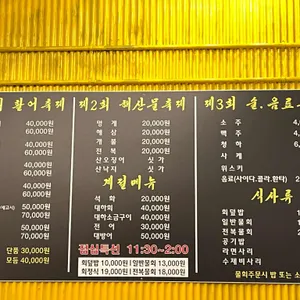 황어축제
40,000원
60,000원
40,000원
60,000원
40,000원
60,000원
50,000원
70,000원
단품 30,000원
모듬 40,000원
제2회 해산물축제
멍게 20,000원
해삼 20,000원
개불 20,000원
전복 20,000원
산오징어 싯가
산낙지 싯가
계절메뉴
석화 20,000원
대하회 40,000원
대하소금구이 40,000원
전어 30,000원
대방어 50,000원
점심특선 11:30~2:00
회덮밥 10,000원 일반물회 13,000원
회정식 19,000원 전복물회 18,000원
제3회 술.음료
소주
맥주
청하
사케
위스키
음료(사이다.콜라.환타)
식사류
회덮밥
일반물회
전복물회
공기밥
라면사리
수제비사리
물회주문시 밥 또는